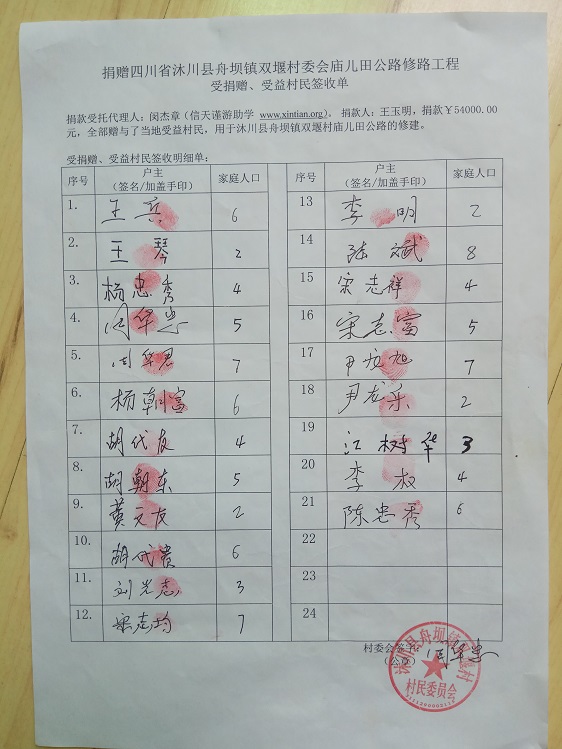 捐赠四川省沐川县舟坝镇双堰村委会庙儿田公路修路工程
受捐赠、受益村民签收单
捐款受托代理人：闵杰章（信天谨游助学 www.xintian.org）。 捐款人：王玉明，捐款￥54000.00
元，全部赠与了当地受益村民，用于沐川县舟坝镇双堰村庙儿田公路的修建。
受捐赠、受益村民签收明细单：
序号 户主（签名/加盖手印） 家庭人口
1. 王兵 6
2. 王琴 2
3. 杨忠秀 4
4. 周华 5
5. 周华君 7
6. 杨朝富 6
7. 胡代友 4
8. 胡朝东 5
9. 黄文友 2
10. 胡代贵 6
11. 刘光志 3
12. 宋志均 7
序号 户主（签名/加盖手印） 家庭人口
13 李明 2
14 陆斌 8
15 宋志祥 4
16 宋志富 5
17 尹旭 7
18 尹龙乐 2
19 江树华 3
20 李叔 4
21 陈忠秀 6
22
23
24
村委会签字：周华
（公章）
沐川县舟坝镇双堰村
村民委员会